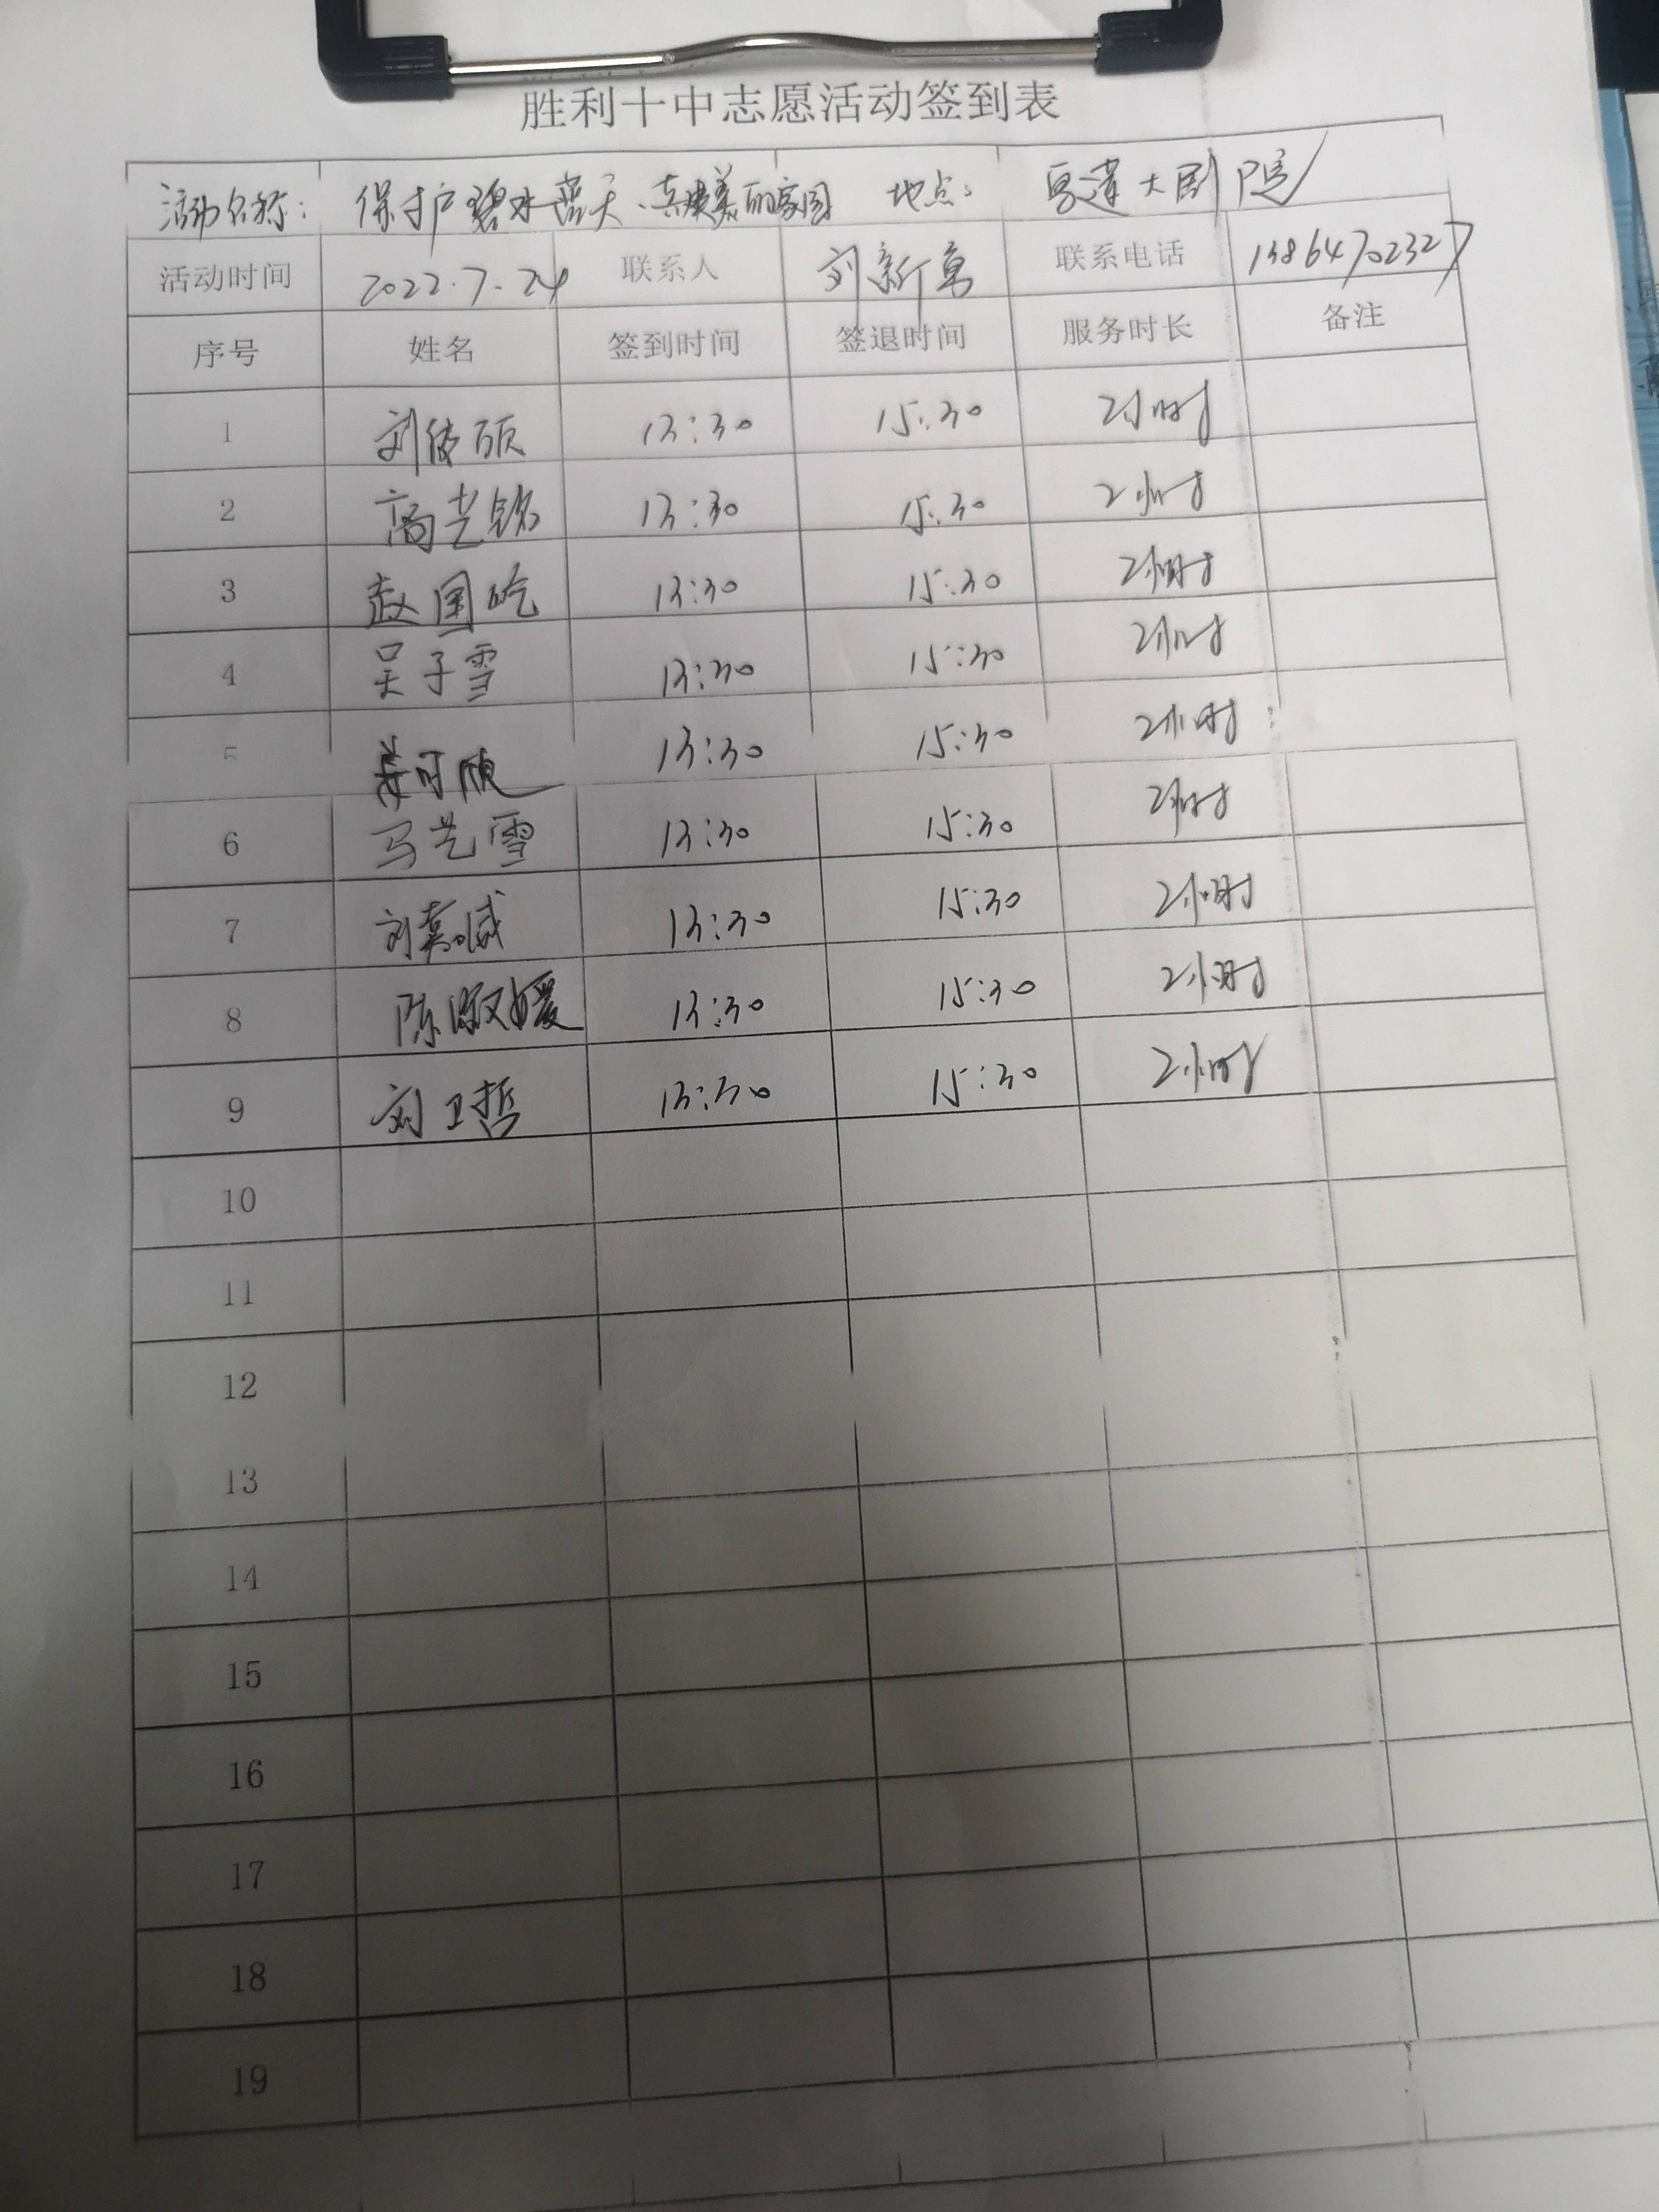 胜利十中志愿活动签到表
活动名称： 保护碧水蓝天、共建美丽家园 地点： 大剧院
活动时间 2022.7.24 联系人 刘新 联系电话 13864702327
序号 姓名 签到时间 签退时间 服务时长 备注
1 刘 硕 13:30 15:30 2小时
2 高艺铭 13:30 15:30 2小时
3 赵国屹 13:30 15:30 2小时
4 吴子雪 13:30 15:30 2小时
5 姜可欣 13:30 15:30 2小时
6 马艺雪 13:30 15:30 2小时
7 刘嘉 13:30 15:30 2小时
8 陈淑媛 13:30 15:30 2小时
9 刘卫哲 13:30 15:30 2小时
10
11
12
13
14
15
16
17
18
19